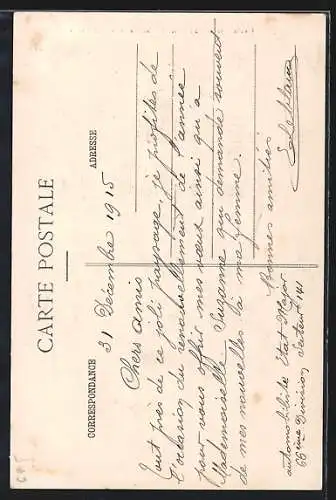 CARTE POSTALE
CORRESPONDANCE
ADRESSE
31 Décembre 1915
Chers amis
Tout près de ce joli paysage, je profites de
l'occasion du renouvellement de l'année
pour vous offrir mes vœux ainsi qu'a
Mademoiselle Suzanne qui demande souvent
de mes nouvelles à ma femme.
Bonnes amitiés
automobiliste Etat Major
66ème Division, secteur 141